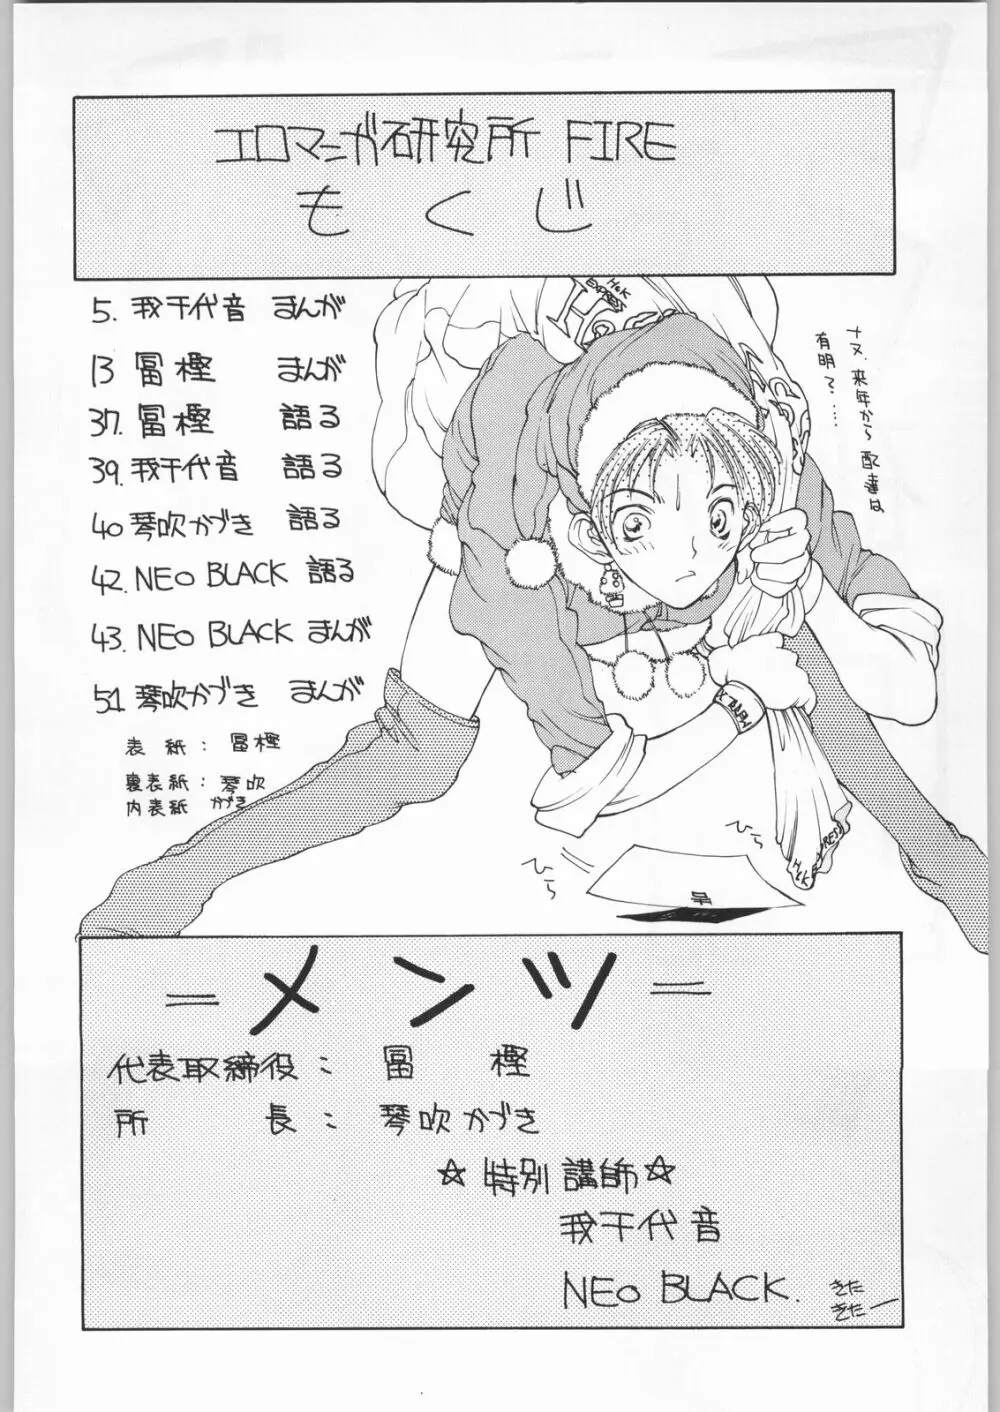 エロマニガ研究所 FIRE
もくじ
5. 我干代音 まんが
13 冨樫 まんが
37. 冨樫 語る
39. 我干代音 語る
40 琴吹かづき 語る
42. NEO BLACK 語る
43. NEO BLACK まんが
51 琴吹かづき まんが
表紙：冨樫
裏表紙：琴吹
内表紙 かづき
H&K
EXPRESS
ナヌ、来年から配達は
有明？……
ひら
ひら
H&K EXPRESS
＝メンツ＝
代表取締役：冨樫
所長：琴吹かづき
☆特別講師☆
我干代音
NEO BLACK.
きた
きたー